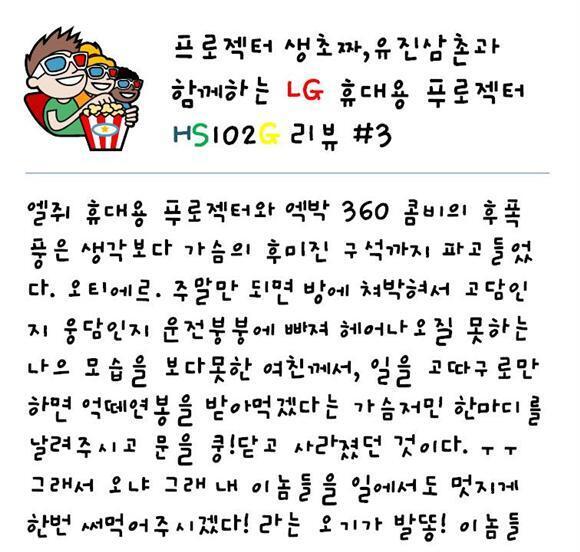 프로젝터 생초짜,유진삼촌과
함께하는 LG 휴대용 푸로젝터
HS102G 리뷰 #3
엘쥐 휴대용 푸로젝터와 엑박 360 콤비의 후폭
풍은 생각보다 가슴의 후미진 구석까지 파고들었
다. 오티에르. 주말만 되면 방에 쳐박혀서 고담인
지 웅담인지 운전붕붕에 빠져 헤어나오질 못하는
나으 모습을 보다못한 여친께서, 일을 고따구로만
하면 억떼연봉을 받아먹겠다는 가슴저민 한마디를
날려주시고 문을 쿵!닫고 사라졌던 것이다. ㅜㅜ
그래서 오냐 그래 내 이놈들을 일에서도 멋지게
한번 써먹어주시겠다! 라는 오기가 발똥! 이놈들